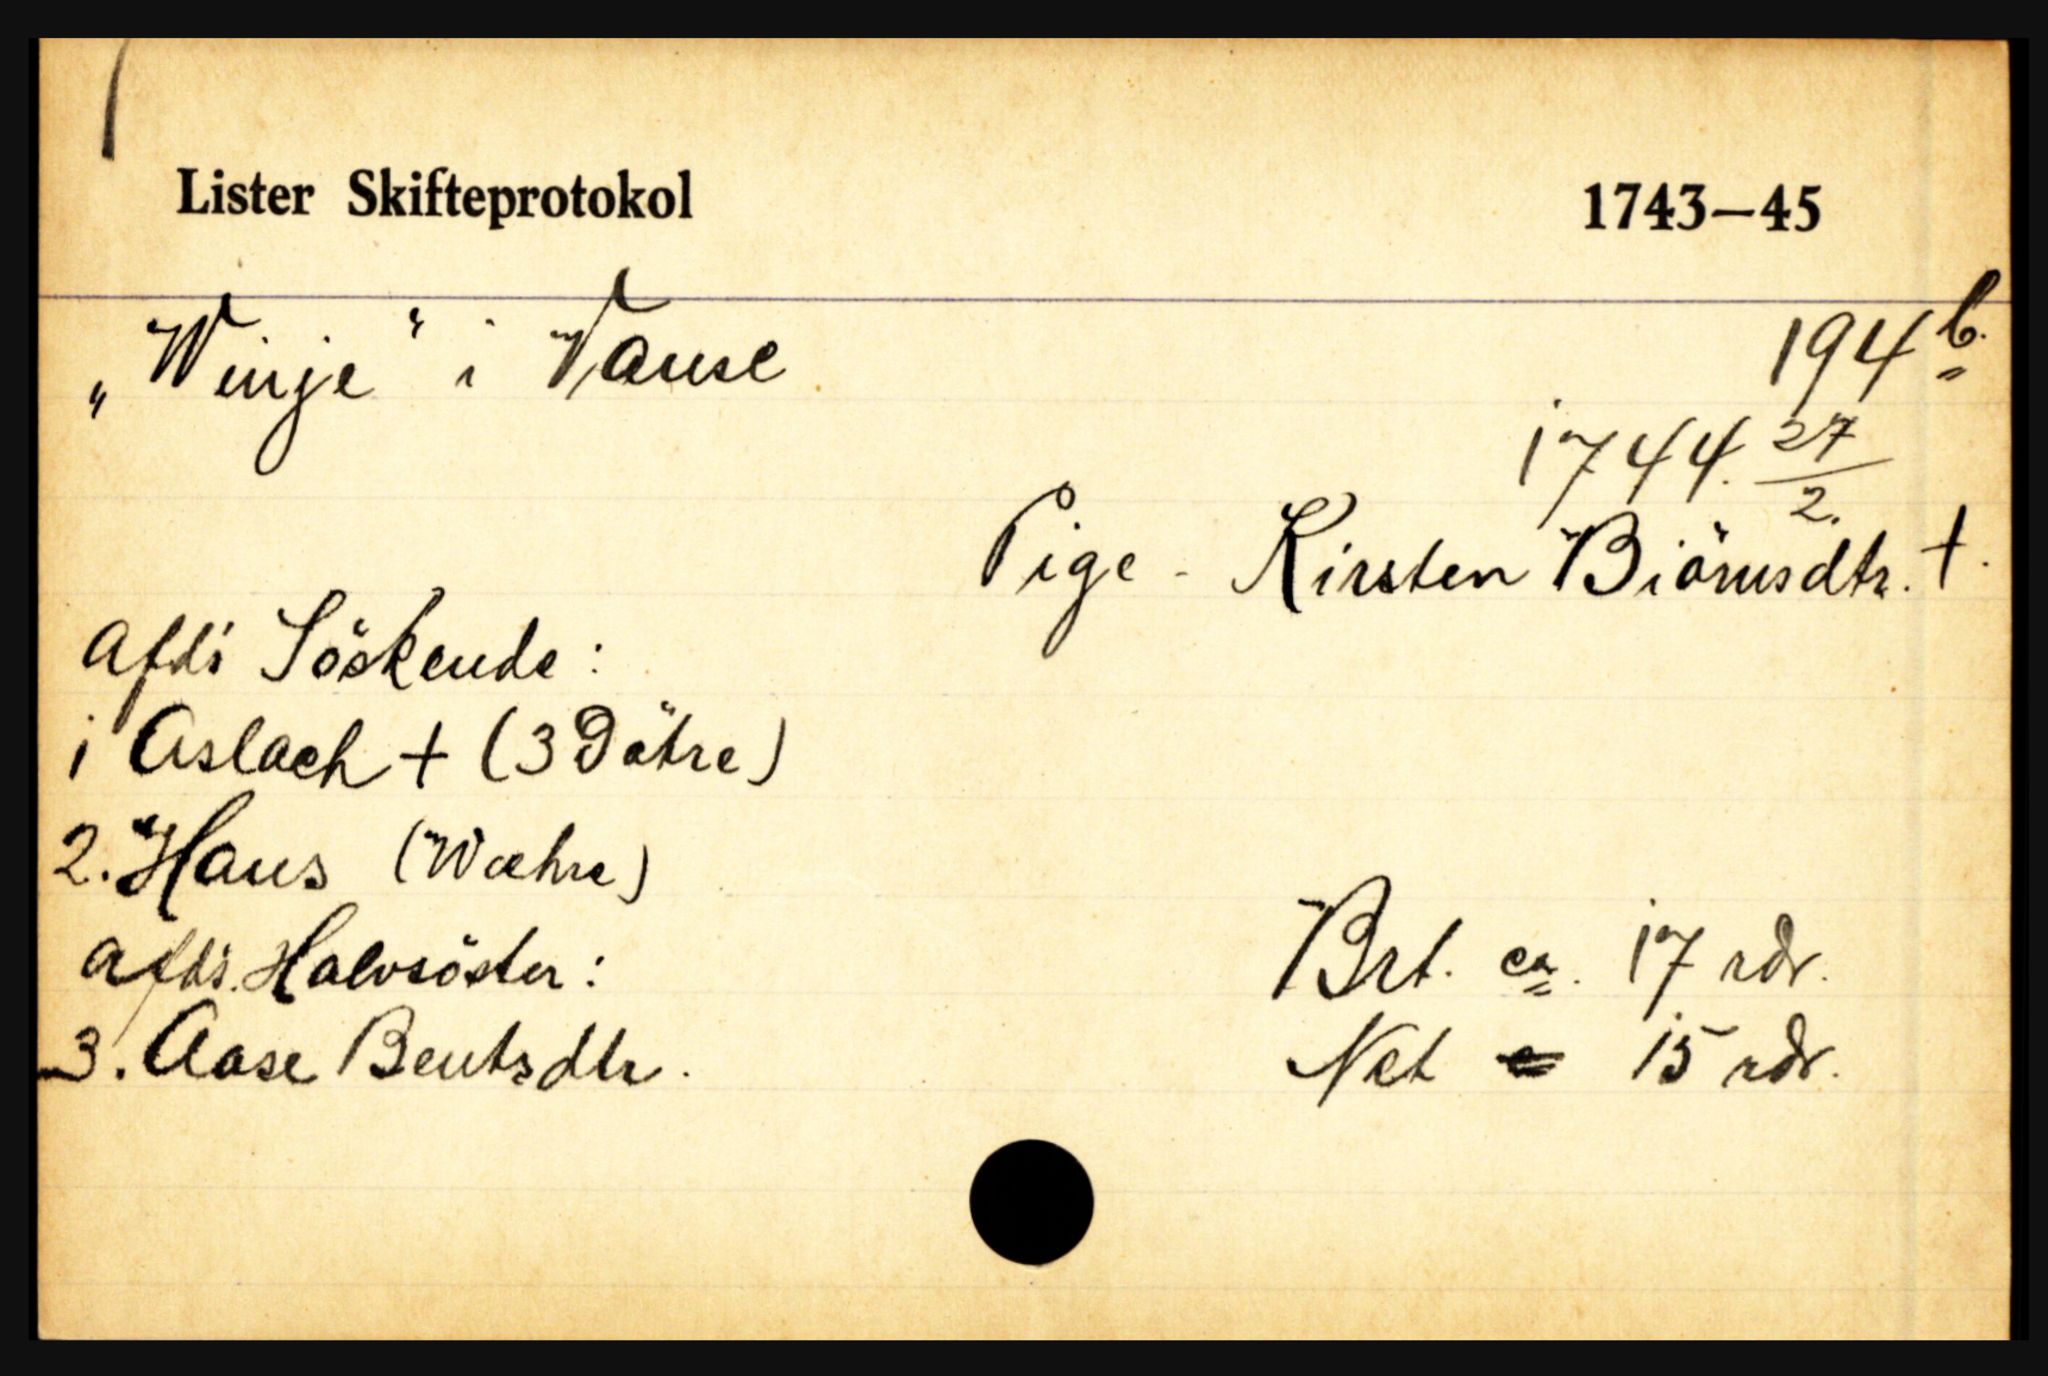 Lister Skifteprotokol 1743—45
„Winje“ i Vanse 194 b.
1744. 27/2.
Pige - Kirsten Biörnsdtr. †.
afds Söskende:
1 Aslach † (3 Dötre)
2. Hans (Wæhre)
afds. Halvsöster:
3. Aase Bentsdtr.
Brt. ca. 17 rdr.
Net 15 rdr.